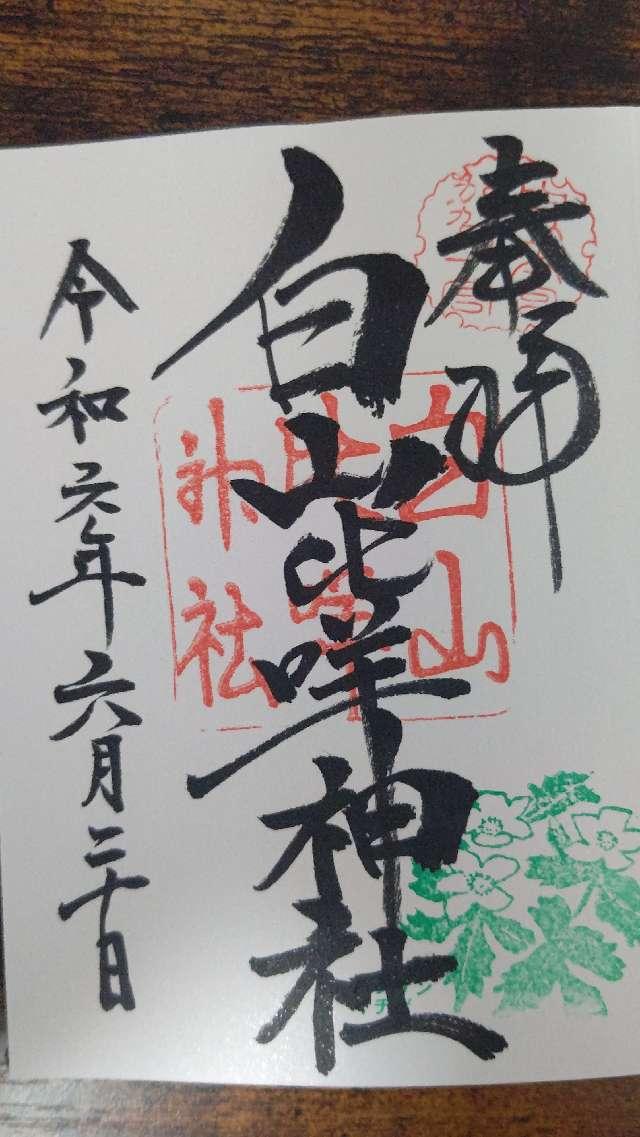 奉拝
白山比咩神社
令和六年六月二十日
白山
比咩
神社